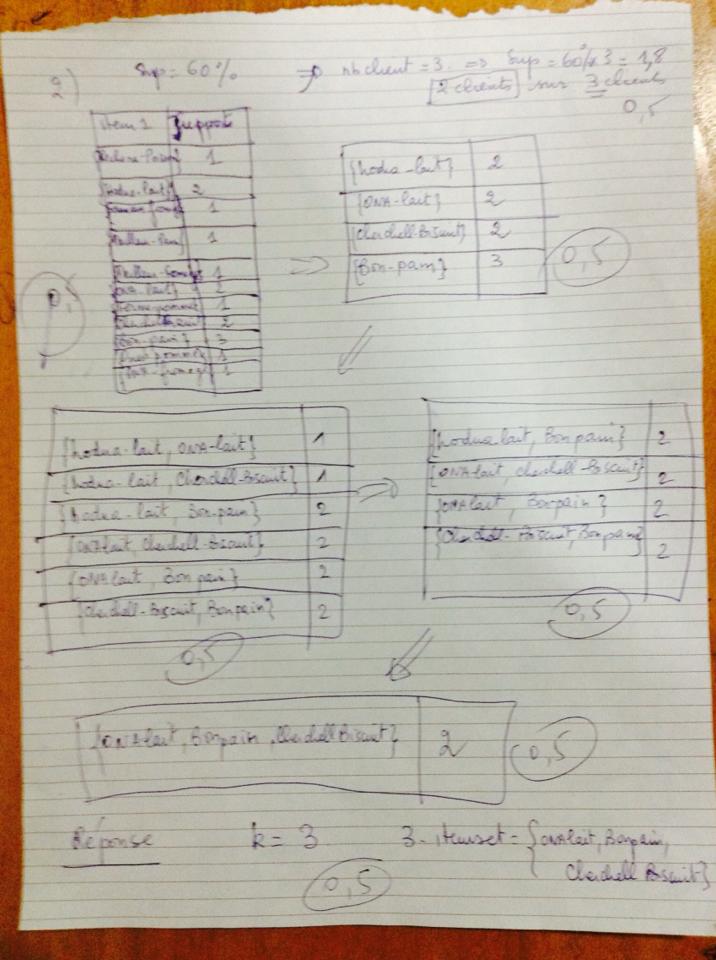 2) Sup = 60% ⇒ nb client = 3 ⇒ Sup = 60% x 3 = 1,8
2 clients sur 3 clients
0,5
item 1 Support
1
lait} 2
1
1
1
ONA-lait} 2
1
2
Bon-pain} 3
1
fromage} 1
0,5
{hodna-lait} 2
{ONA-lait} 2
{Cherchell-Biscuit} 2
{Bon-pain} 3
0,5
{hodna-lait, ONA-lait} 1
{hodna-lait, Cherchell-Biscuit} 1
{hodna-lait, Bon-pain} 2
{ONAlait, Cherchell-Biscuit} 2
{ONAlait, Bon pain} 2
{Cherchell-Biscuit, Bonpain} 2
0,5
{hodna lait, Bonpain} 2
{ONAlait, cherchell-Biscuit} 2
{ONAlait, Bonpain} 2
{Cherchell-Biscuit, Bonpain} 2
0,5
{ONAlait, Bonpain, Cherchell Biscuit} 2
0,5
Réponse k = 3 3-itemset = {ONAlait, Bonpain,
Cherchell Biscuit}
0,5